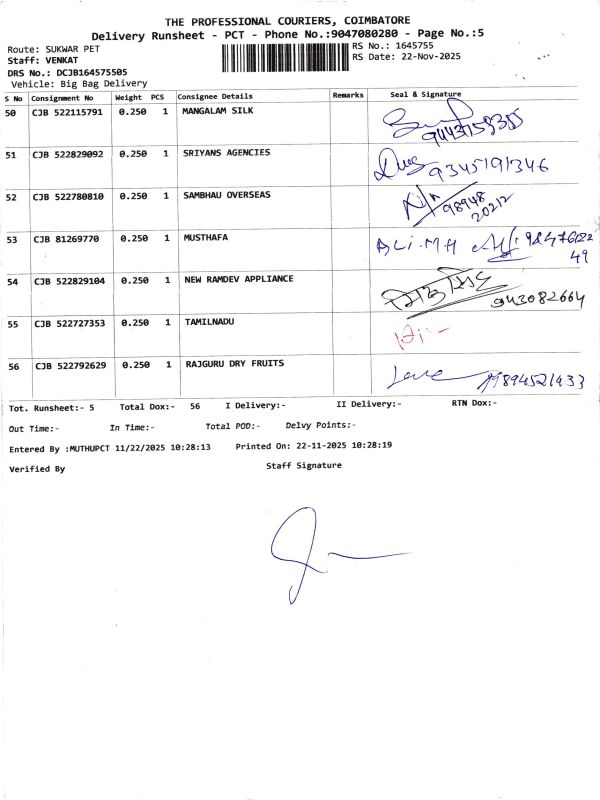 THE PROFESSIONAL COURIERS, COIMBATORE
Delivery Runsheet - PCT - Phone No.:9047080280 - Page No.:5
Route: SUKWAR PET RS No.: 1645755
Staff: VENKAT RS Date: 22-Nov-2025
DRS No.: DCJB164575505
Vehicle: Big Bag Delivery
S No Consignment No Weight PCS Consignee Details Remarks Seal & Signature
50 CJB 522115791 0.250 1 MANGALAM SILK
51 CJB 522829092 0.250 1 SRIYANS AGENCIES 9345191346
52 CJB 522780810 0.250 1 SAMBHAU OVERSEAS 98948
20212
53 CJB 81269770 0.250 1 MUSTHAFA ALi.M.H
49
54 CJB 522829104 0.250 1 NEW RAMDEV APPLIANCE 943082664
55 CJB 522727353 0.250 1 TAMILNADU
56 CJB 522792629 0.250 1 RAJGURU DRY FRUITS 9894521933
Tot. Runsheet:- 5 Total Dox:- 56 I Delivery:- II Delivery:- RTN Dox:-
Out Time:- In Time:- Total POD:- Delvy Points:-
Entered By :MUTHUPCT 11/22/2025 10:28:13 Printed On: 22-11-2025 10:28:19
Verified By Staff Signature